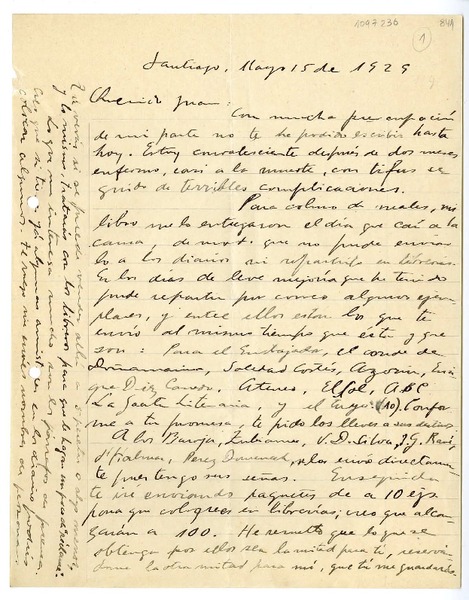 1097236
841
1
Santiago, Mayo 15 de 1929
Querido Juan:
Con mucha preocupación
de mi parte no te he podido escribir hasta
hoy. Estoy convalesciente después de dos meses
enfermo, casi a la muerte, con tifus se
guido de terribles complicaciones.
Para colmo de males, mi
libro me lo entregaron el día que caí a la
cama, de modo que no pude enviar
lo a los diarios ni repartirlo en librerías.
En los días de leve mejoría que he tenido
pude repartir por correo algunos ejem
plares, y entre ellos están los que te
envío al mismo tiempo que ésta y que
son: Para el Embajador, el conde de
Soledad Cortés, Azorín, Enri
que Diez Canedo, Ateneo, El Sol, A B C
La Gaceta Literaria, y el (10). Confor
me a tu promesa, te pido los lleves a sus
A los Baroja, V. D. Silva, J. G.
d'Halmar, Perez se los envío directamen
te pues tengo sus señas. Enseguida
te iré enviando paquetes de a 10 ejs
para que coloques en librerías; creo que alcan
zarán a 100. He resuelto que lo que se
obtenga por ellos sea la mitad para ti, reserván
dome la otra mitad para mí, que tú me guardarás.
Tú verás si se puede vender allá a 5 pesetas o algo menos,
y lo mismo, tratarás con los libreros para que le hagan un poco de réclame.
Lo que me interesa mucho son los párrafos de prensa.
Creo que tú tienes ya algunas amistades en los diarios podrás
colocar algunos. Te ruego me envíes nombres de
personas